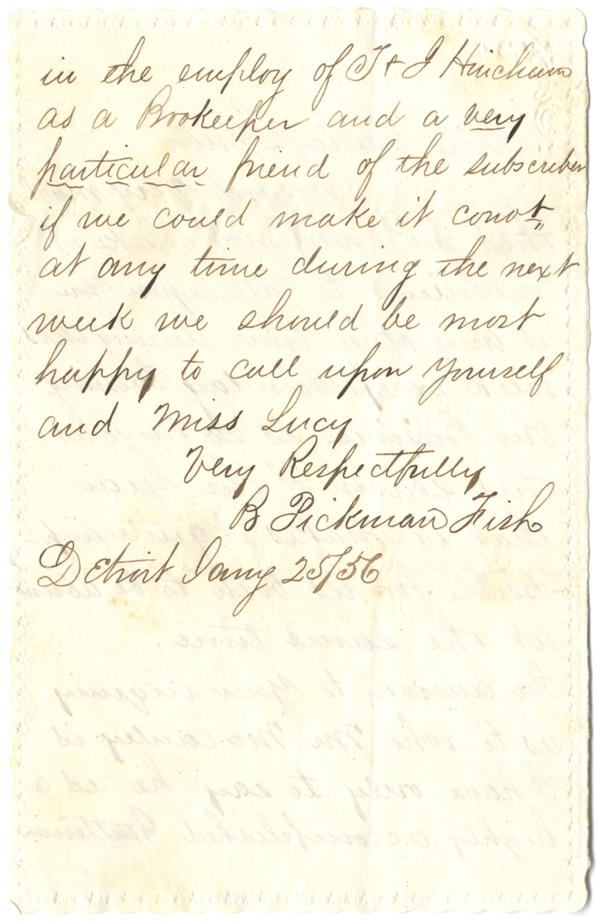 in the employ of T & J Hinchman
as a Bookeeper and a very
particular friend of the subscriber
if we could make it convt
at any time during the next
week we should be most
happy to call upon yourself
and Miss Lucy
Very Respectfully
B Pickman Fish
Detroit Jany 25/56